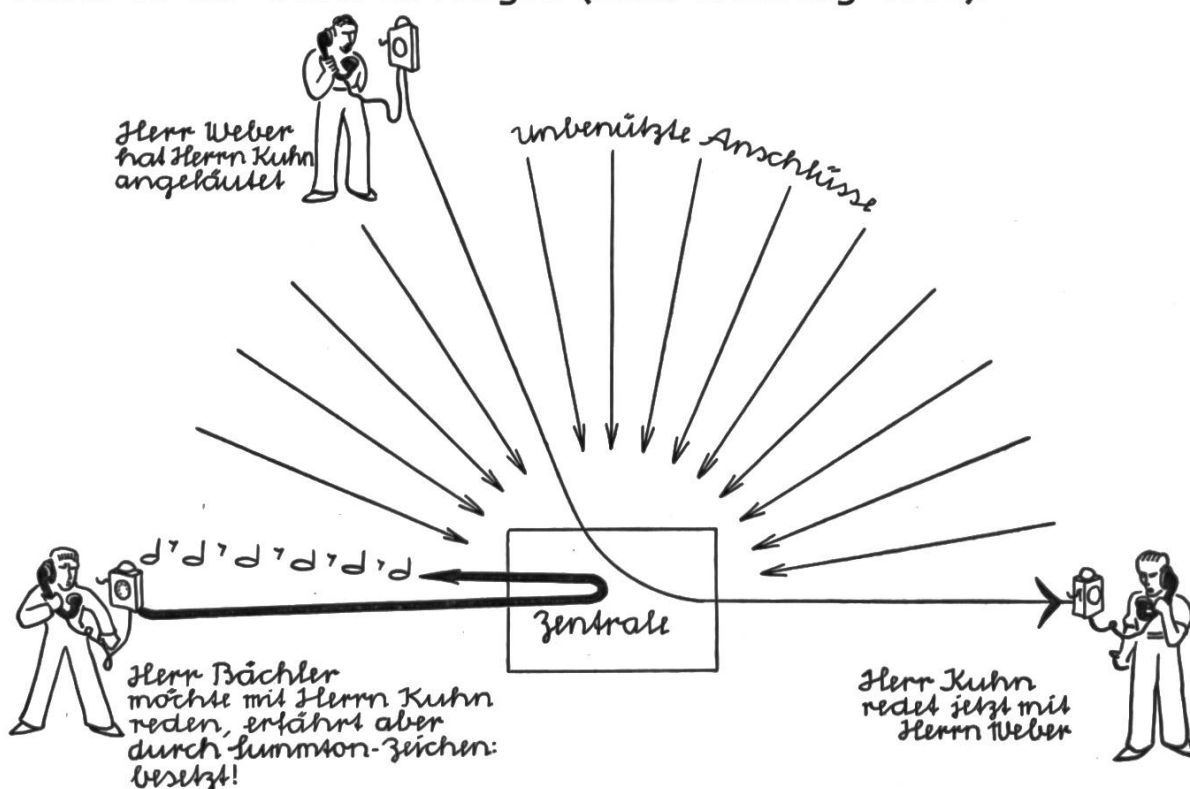 Herr Weber
hat Herrn Kuhn
angeläutet
unbenützte Anschlüsse
Zentrale
Herr Bächler
möchte mit Herrn Kuhn
reden, erfährt aber
durch Summton-Zeichen:
besetzt!
Herr Kuhn
redet jetzt mit
Herrn Weber